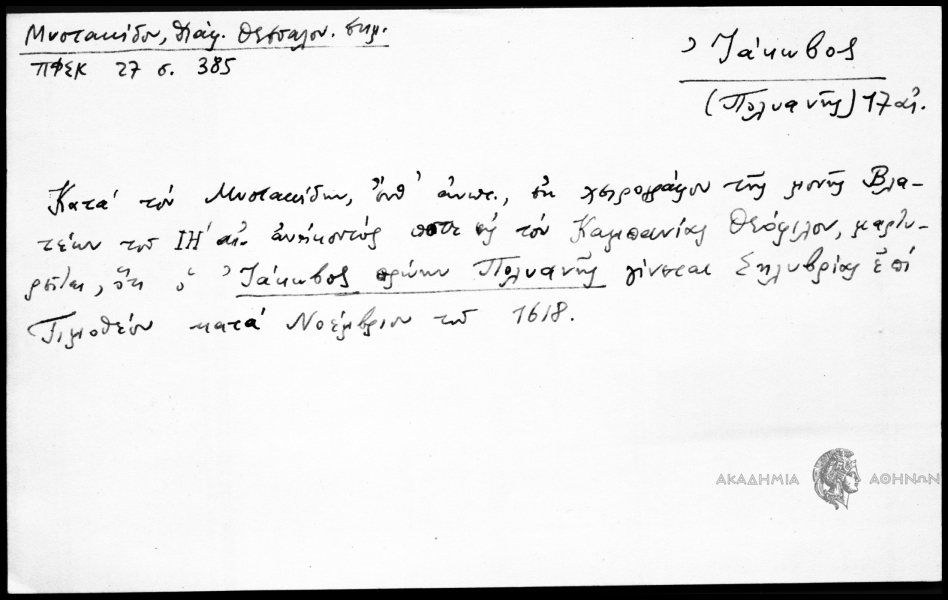 Μυστακίδου, Πάγ. Θεσσαλον. Σημ.
ΠΦΣΚ 27 σ. 385
Ἰάκωβος
(Πολυανῆς) 17 αἰ.
Κατά τόν Μυστακίδην, ἔνθ' ἀνωτ., ἐκ χειρογράφου τῆς μονῆς Βλα-
τέων τοῦ ΙΗ' αἰ. ἀνήκοντός ποτε εἰς τόν Καμπανίας Θεόφιλον, μαρτυ-
ρεῖται, ὅτι ὁ Ἰάκωβος πρώην Πολυανῆς γίνεται Σηλυβρίας ἐπί
Τιμοθέου κατά Νοέμβριον τοῦ 1618.
ΑΚΑΔΗΜΙΑ ΑΘΗΝΩΝ